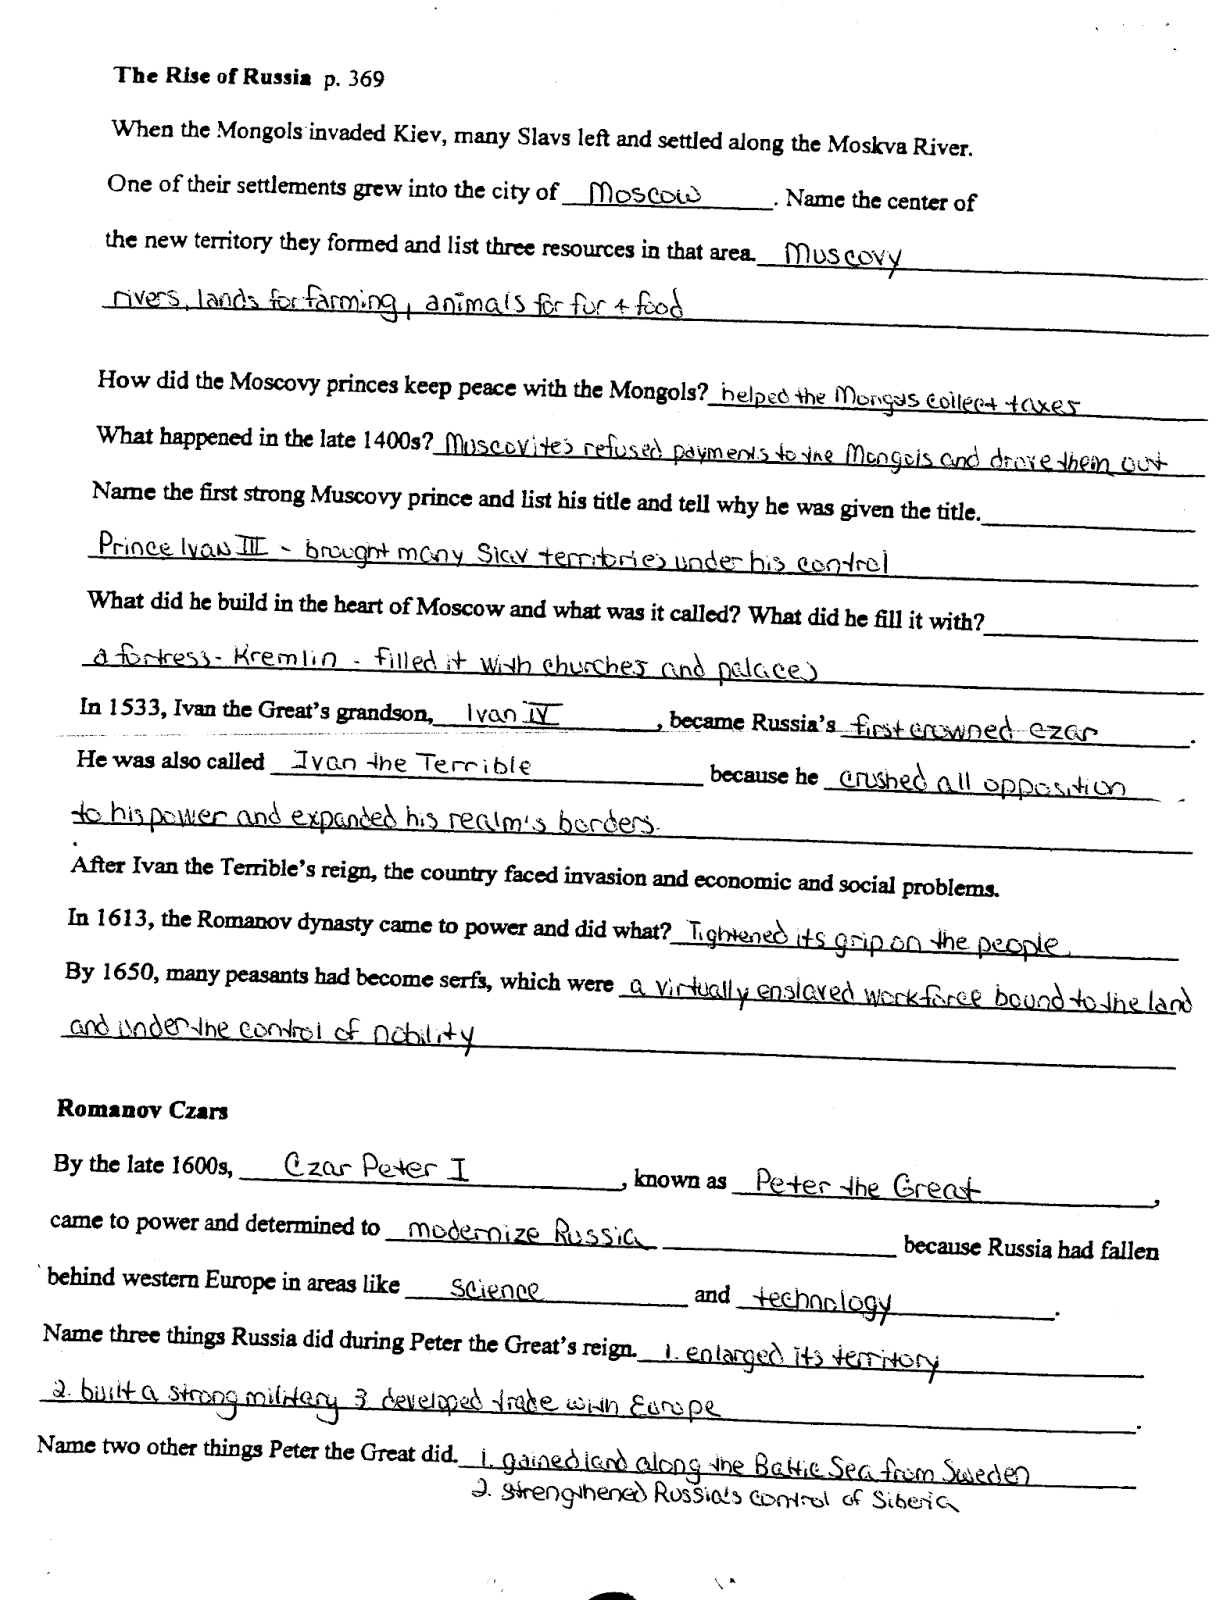 The Rise of Russia p. 369
When the Mongols invaded Kiev, many Slavs left and settled along the Moskva River.
One of their settlements grew into the city of Moscow. Name the center of
the new territory they formed and list three resources in that area. Muscovy
rivers, lands for farming, animals for fur + food
How did the Moscovy princes keep peace with the Mongols? helped the Mongols collect taxes
What happened in the late 1400s? Muscovites refused payments to the Mongols and drove them out
Name the first strong Muscovy prince and list his title and tell why he was given the title.
Prince Ivan III - brought many Slav territories under his control
What did he build in the heart of Moscow and what was it called? What did he fill it with?
a fortress - Kremlin - filled it with churches and palaces
In 1533, Ivan the Great's grandson, Ivan IV, became Russia's first crowned czar.
He was also called Ivan the Terrible because he crushed all opposition
to his power and expanded his realm's borders.
After Ivan the Terrible's reign, the country faced invasion and economic and social problems.
In 1613, the Romanov dynasty came to power and did what? Tightened its grip on the people.
By 1650, many peasants had become serfs, which were a virtually enslaved workforce bound to the land
and under the control of nobility
Romanov Czars
By the late 1600s, Czar Peter I, known as Peter the Great,
came to power and determined to modernize Russia because Russia had fallen
behind western Europe in areas like science and technology.
Name three things Russia did during Peter the Great's reign. 1. enlarged its territory
2. built a strong military 3. developed trade with Europe.
Name two other things Peter the Great did. 1. gained land along the Baltic Sea from Sweden
2. strengthened Russia's control of Siberia